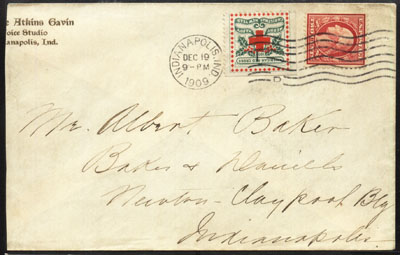 e Atkins Gavin
oice Studio
anapolis, Ind.
INDIANAPOLIS, IND.
DEC 19
9-PM
1909
Mr. Albert Baker
Baker & Daniells
Newton-Claypool Bldg
Indianapolis.